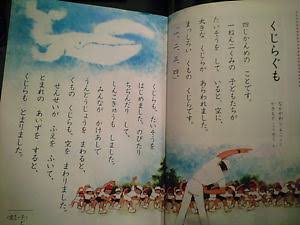 くじらぐも
四じかんめの ことです。
一ねん二くみの 子どもたちが
たいそうを して いると、空に、
大きな くじらが あらわれました。
まっしろい くもの くじらです。
「一、二、三、四。」
くじらも、たいそうを
はじめました。のびたり
ちぢんだり して、
しんこきゅうも しました。
みんなが かけあしで
うんどうじょうを まわると、
くもの くじらも、空を まわりました。
せんせいが ふえを ふいて、
とまれの あいずを すると、
くじらも とまりました。